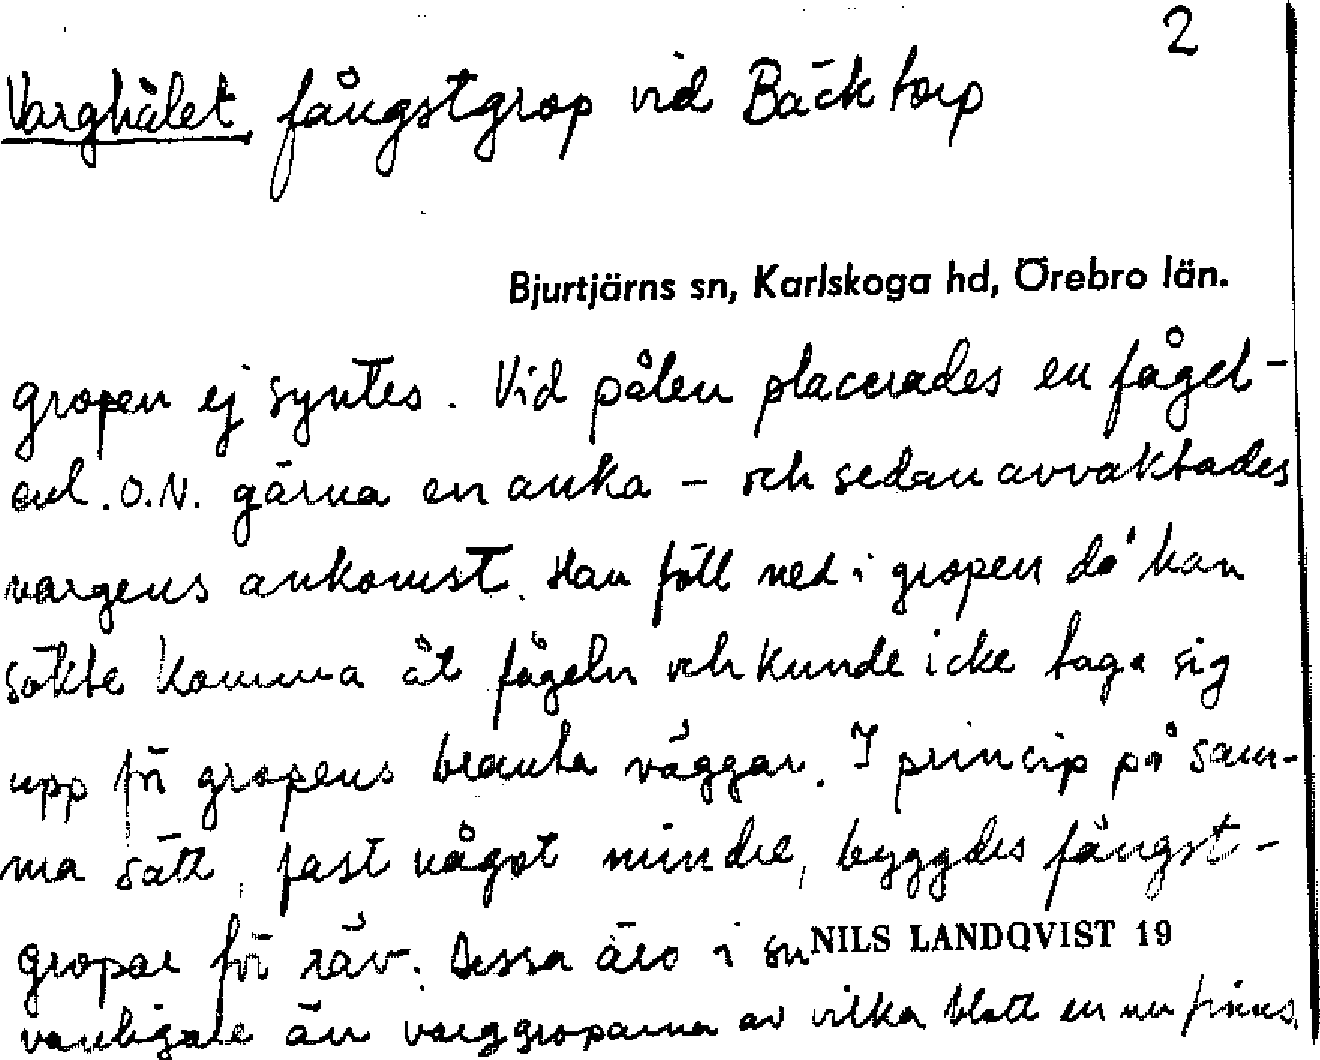 2
Varghålet, fångstgrop vid Bäcktorp
Bjurtjärns sn, Karlskoga hd, Örebro län.
gropen ej syntes. Vid pålen placerades en fågel-
enl. O.N. gärna en anka – och sedan avvaktades
vargens ankomst. Han föll ned i gropen då han
sökte komma åt fågeln och kunde icke taga sig
upp för gropens branta väggar. I princip på sam-
ma sätt, fast något mindre, byggdes fångst-
gropar för räv. Dessa äro i sn
NILS LANDQVIST 19
vanligare än varggroparna av vilka blott en nu finns.